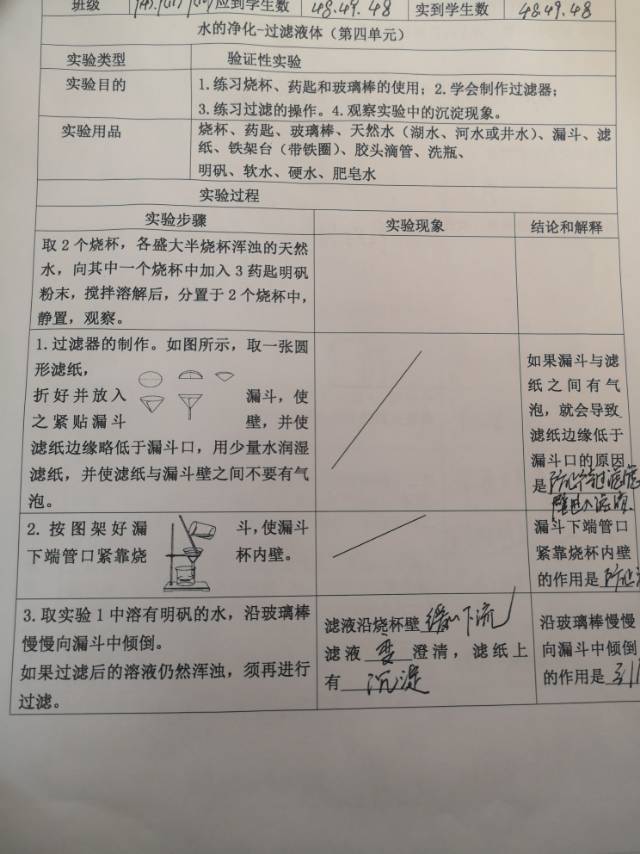 班级 应到学生数 48.49.48 实到学生数 48.49.48
水的净化-过滤液体（第四单元）
实验类型 验证性实验
实验目的 1.练习烧杯、药匙和玻璃棒的使用；2.学会制作过滤器；
3.练习过滤的操作。4.观察实验中的沉淀现象。
实验用品 烧杯、药匙、玻璃棒、天然水（湖水、河水或井水）、漏斗、滤
纸、铁架台（带铁圈）、胶头滴管、洗瓶、
明矾、软水、硬水、肥皂水
实验过程
实验步骤 实验现象 结论和解释
取2个烧杯，各盛大半烧杯浑浊的天然
水，向其中一个烧杯中加入3药匙明矾
粉末，搅拌溶解后，分置于2个烧杯中，
静置，观察。
1.过滤器的制作。如图所示，取一张圆
形滤纸，
折好并放入 漏斗，使
之紧贴漏斗 壁，并使
滤纸边缘略低于漏斗口，用少量水润湿
滤纸，并使滤纸与漏斗壁之间不要有气
泡。
如果漏斗与滤
纸之间有气
泡，就会导致
滤纸边缘低于
漏斗口的原因
是
2.按图架好漏 斗，使漏斗
下端管口紧靠烧 杯内壁。
漏斗下端管口
紧靠烧杯内壁
的作用是 防止
3.取实验1中溶有明矾的水，沿玻璃棒
慢慢向漏斗中倾倒。
如果过滤后的溶液仍然浑浊，须再进行
过滤。
滤液沿烧杯壁 下流
滤液 变 澄清，滤纸上
有 沉淀
沿玻璃棒慢慢
向漏斗中倾倒
的作用是 引